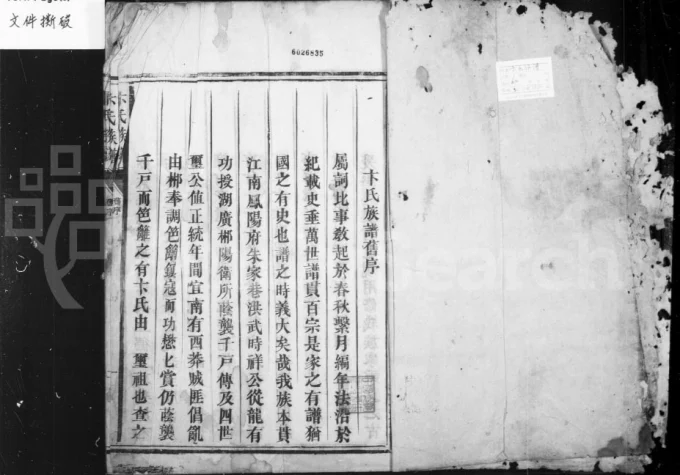 文件撕破
6026835
卞氏族譜舊序
屬詞比事教起於春秋繫月編年法沿於
紀載史垂萬世譜貫百宗是家之有譜猶
國之有史也譜之時義大矣哉我族本貫
江南鳳陽府朱家巷洪武時祥公從龍有
功授湖廣郴陽衛所蔭襲千戸傳及四世
璽公值正統年間宜南有西莽賊匪倡亂
由郴奉調笆籬剿寇而功懋上賞仍蔭襲
千戸而笆籬之有卞氏由 璽祖也查之
卞氏族